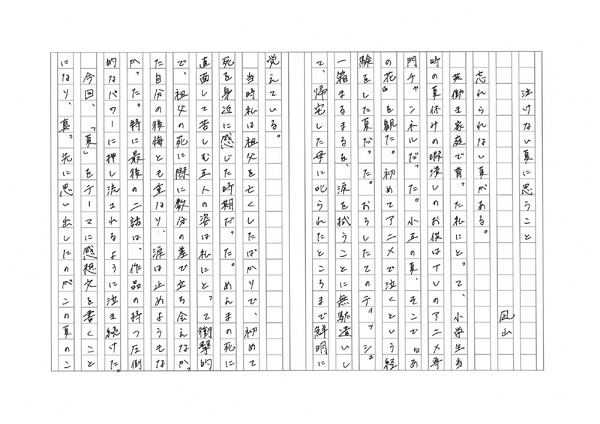 泣けない夏に思うこと
凪山
忘れられない夏がある。
共働き家庭で育った私にとって、小学生当
時の夏休みの暇潰しのお供はテレビのアニメ専
門チャンネルだった。小五の夏、そこで「あ
の花」を観た。初めてアニメで泣くという経
験をした夏だった。おろしたてのティッシュ
一箱まるまるを、涙を拭うことに無駄遣いし
て、帰宅した母に叱られたところまで鮮明に
覚えている。
当時私は祖父を亡くしたばかりで、初めて
死を身近に感じた時期だった。めんまの死に
直面して苦しむ五人の姿は私にとって衝撃的
で、祖父の死に際に数分の差で立ち会えなかっ
た自分の後悔とも重なり、涙は止めようもな
かった。特に最後の二話は、作品の持つ圧倒
的なパワーに押し流されるように泣き続けた。
今回、「夏」をテーマに感想文を書くこと
になり、真っ先に思い出したのがこの夏のこ